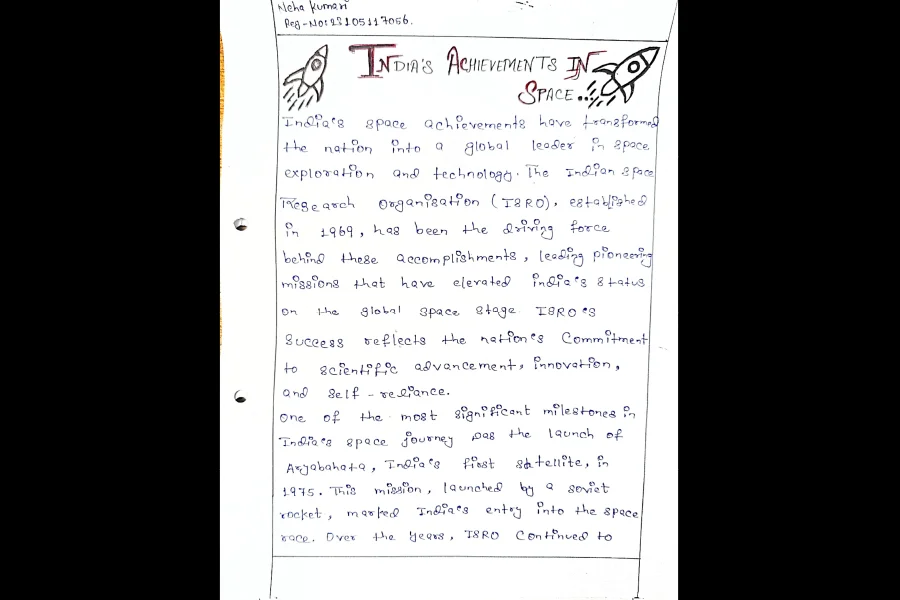 Neha Kumari
Reg-No: 23105117056.
INDIA'S ACHIEVEMENTS IN
SPACE...
India's space achievements have transformed
the nation into a global leader in space
exploration and technology. The Indian space
Research Organisation (ISRO), established
in 1969, has been the driving force
behind these accomplishments, leading pioneering
missions that have elevated india's status
on the global space stage ISRO's
Success reflects the nation's Commitment
to scientific advancement, innovation,
and self-reliance.
One of the most significant milestones in
India's space journey was the launch of
Aryabahata, India's first satellite, in
1975. This mission, launched by a soviet
rocket, marked India's entry into the space
race. Over the years, ISRO Continued to